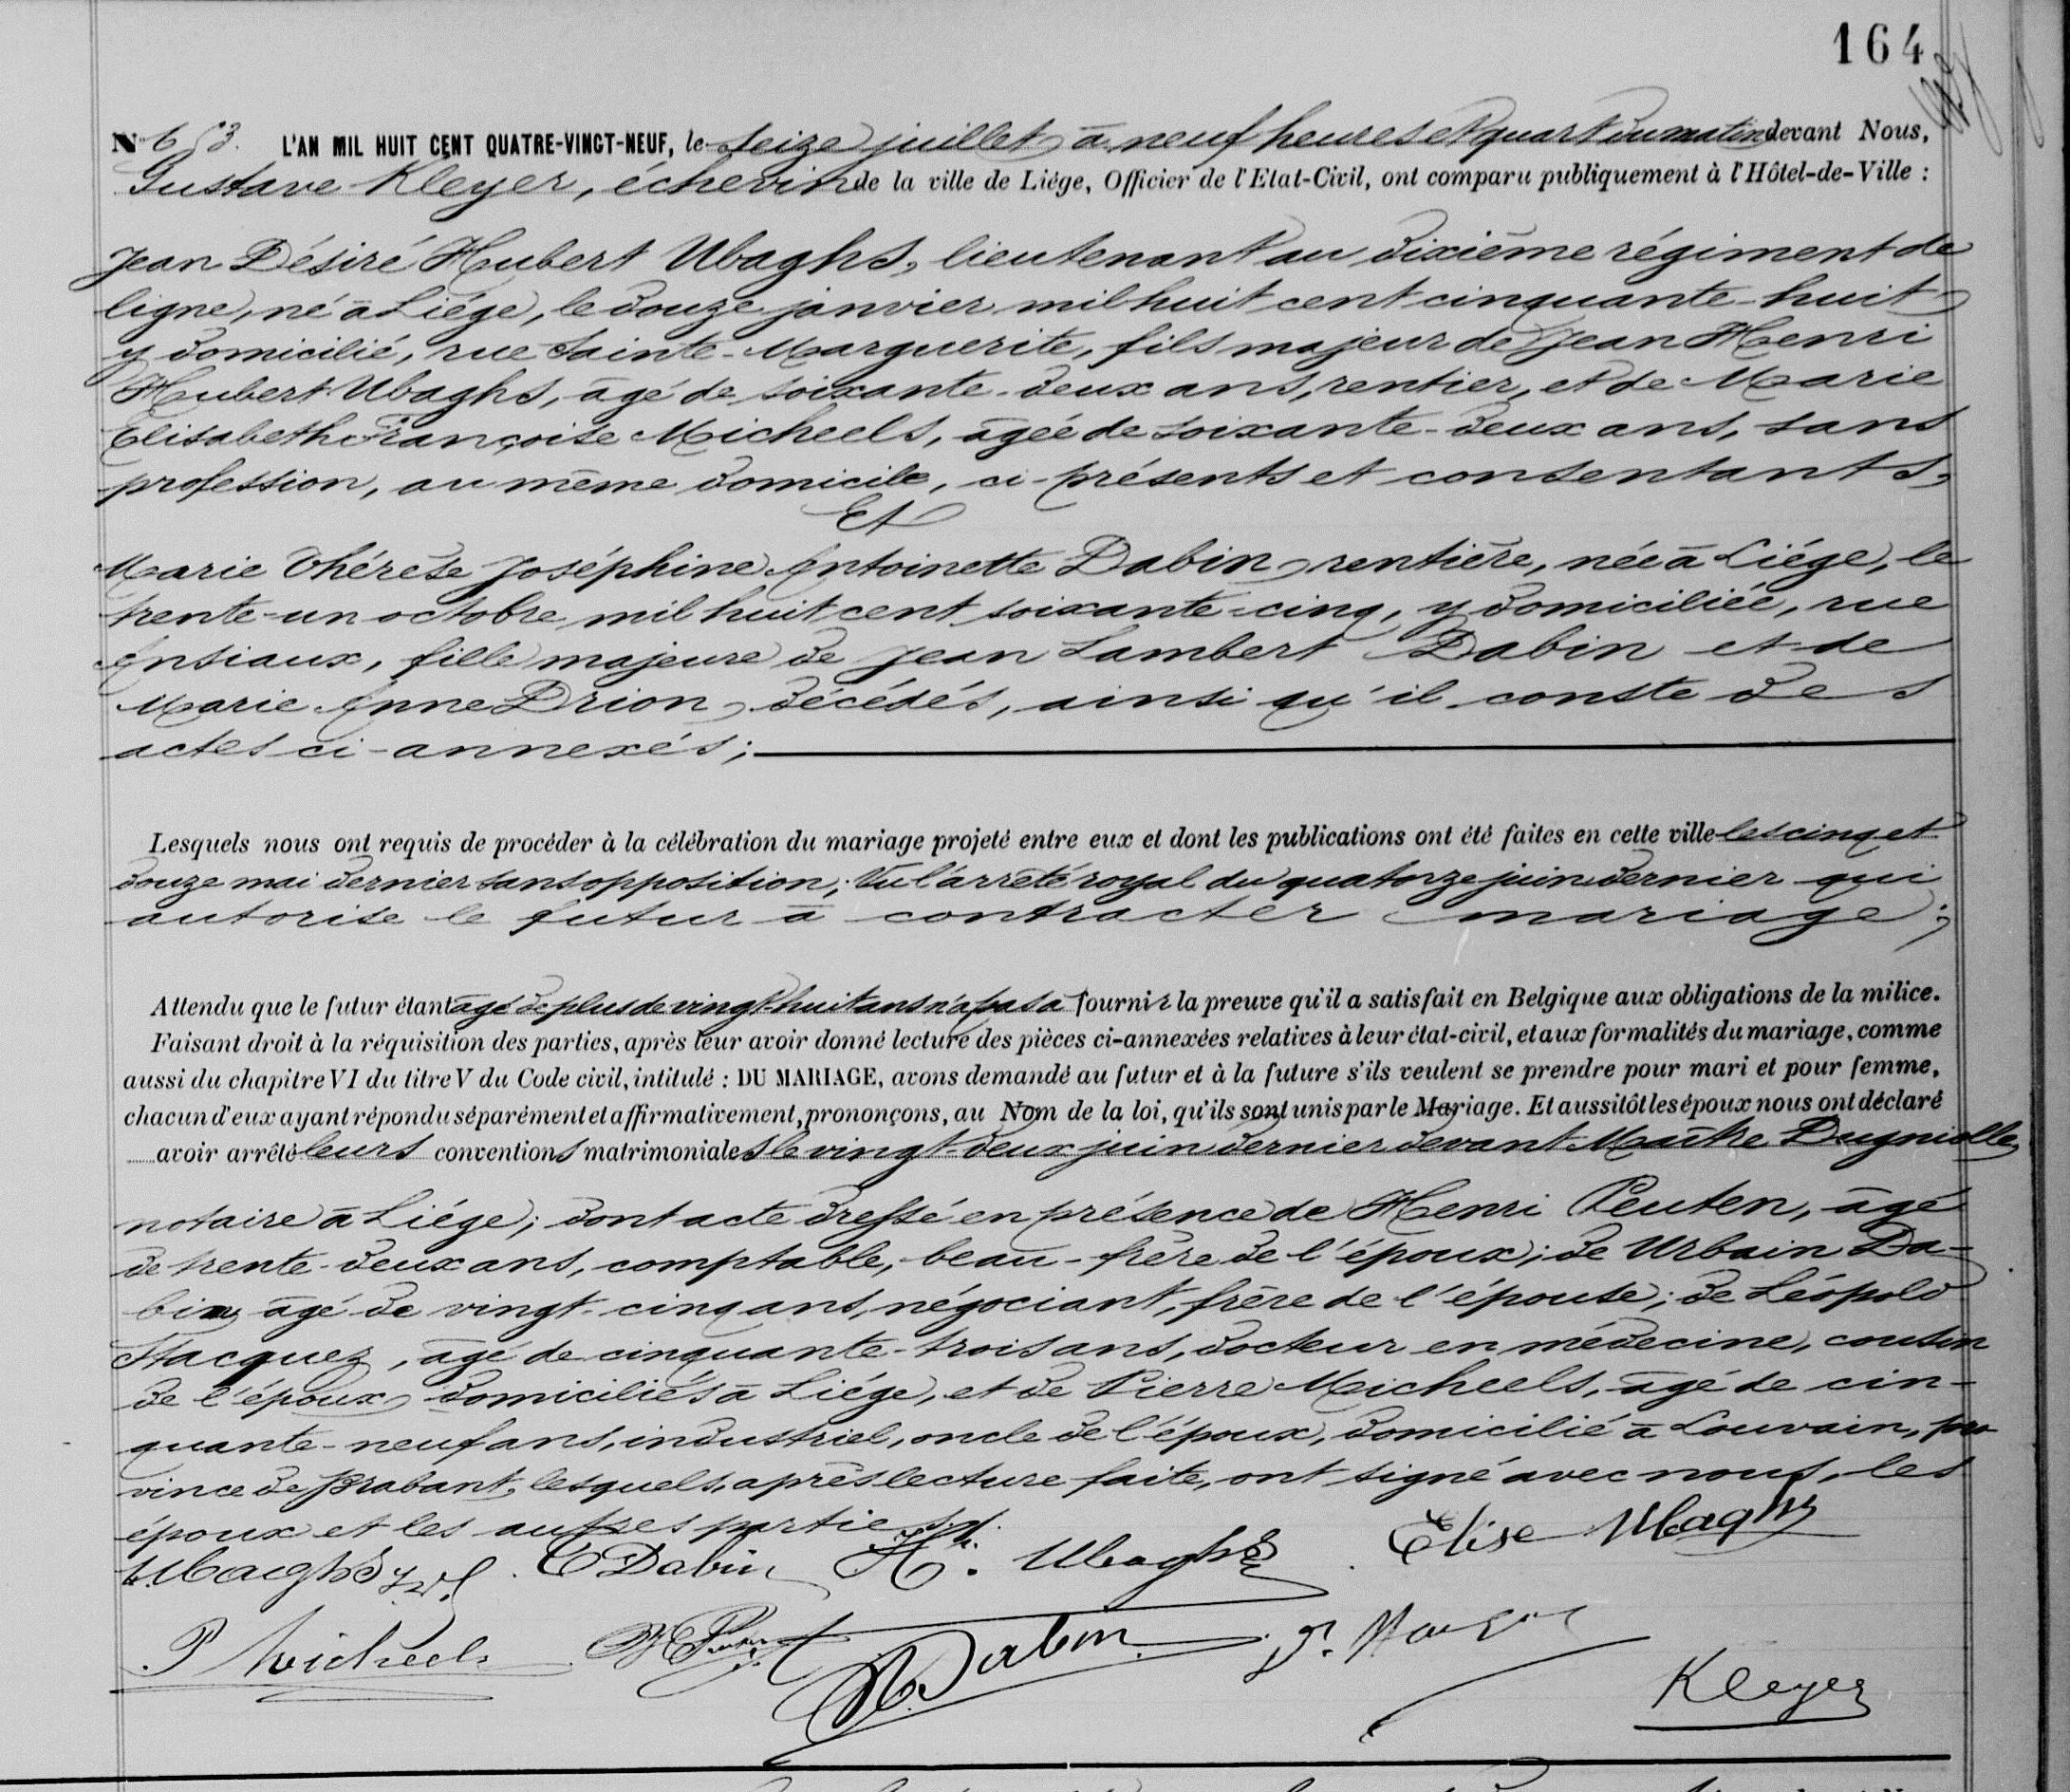 164
N° 653. L'AN MIL HUIT CENT QUATRE-VINGT-NEUF, le seize juillet, à neuf heures et quart du matin devant Nous,
Gustave Kleyer, échevin de la ville de Liége, Officier de l'Etat-Civil, ont comparu publiquement à l'Hôtel-de-Ville :
Jean Désiré Hubert Ubaghs, lieutenant au dixième régiment de
ligne, né à Liége, le douze janvier mil huit cent cinquante-huit,
y domicilié, rue Sainte-Marguerite, fils majeur de Jean Henri
Hubert Ubaghs, âgé de soixante-deux ans, rentier, et de Marie
Elisabeth Françoise Micheels, âgée de soixante-deux ans, sans
profession, au même domicile, ci-présents et consentants,
Et
Marie Thérèse Joséphine Antoinette Dabin, rentière, née à Liége, le
trente-un octobre mil huit cent soixante-cinq, y domiciliée, rue
Ansiaux, fille majeure de Jean Lambert Dabin et de
Marie Anne Drion, décédés, ainsi qu'il conste des
actes ci-annexés;
Lesquels nous ont requis de procéder à la célébration du mariage projeté entre eux et dont les publications ont été faites en cette ville les cinq et
douze mai dernier sans opposition; Vu l'arrêté royal du quatorze juin dernier qui
autorise le futur à contracter mariage;
Attendu que le futur étant âgé de plus de vingt-huit ans n'a pas à fournir la preuve qu'il a satisfait en Belgique aux obligations de la milice.
Faisant droit à la réquisition des parties, après leur avoir donné lecture des pièces ci-annexées relatives à leur état-civil, et aux formalités du mariage, comme
aussi du chapitre VI du titre V du Code civil, intitulé : DU MARIAGE, avons demandé au futur et à la future s'ils veulent se prendre pour mari et pour femme,
chacun d'eux ayant répondu séparément et affirmativement, prononçons, au Nom de la loi, qu'ils sont unis par le Mariage. Et aussitôt les époux nous ont déclaré
avoir arrêté leurs conventions matrimoniales le vingt-deux juin dernier devant Maître Dugniolle,
notaire à Liége; dont acte dressé en présence de Henri Peuten, âgé
de trente-deux ans, comptable, beau-frère de l'époux; de Urbain Da-
bin, âgé de vingt-cinq ans, négociant, frère de l'épouse; de Léopold
Stacquez, âgé de cinquante-trois ans, docteur en médecine, cousin
de l'époux, domiciliés à Liége, et de Pierre Micheels, âgé de cin-
quante-neuf ans, industriel, oncle de l'époux, domicilié à Louvain, pro
vince de Brabant, lesquels, après lecture faite, ont signé avec nous, les
époux et les autres parties.
Ubaghs T Dabin H. Ubaghs Elise Ubaghs
P Micheels Dabin
Kleyer